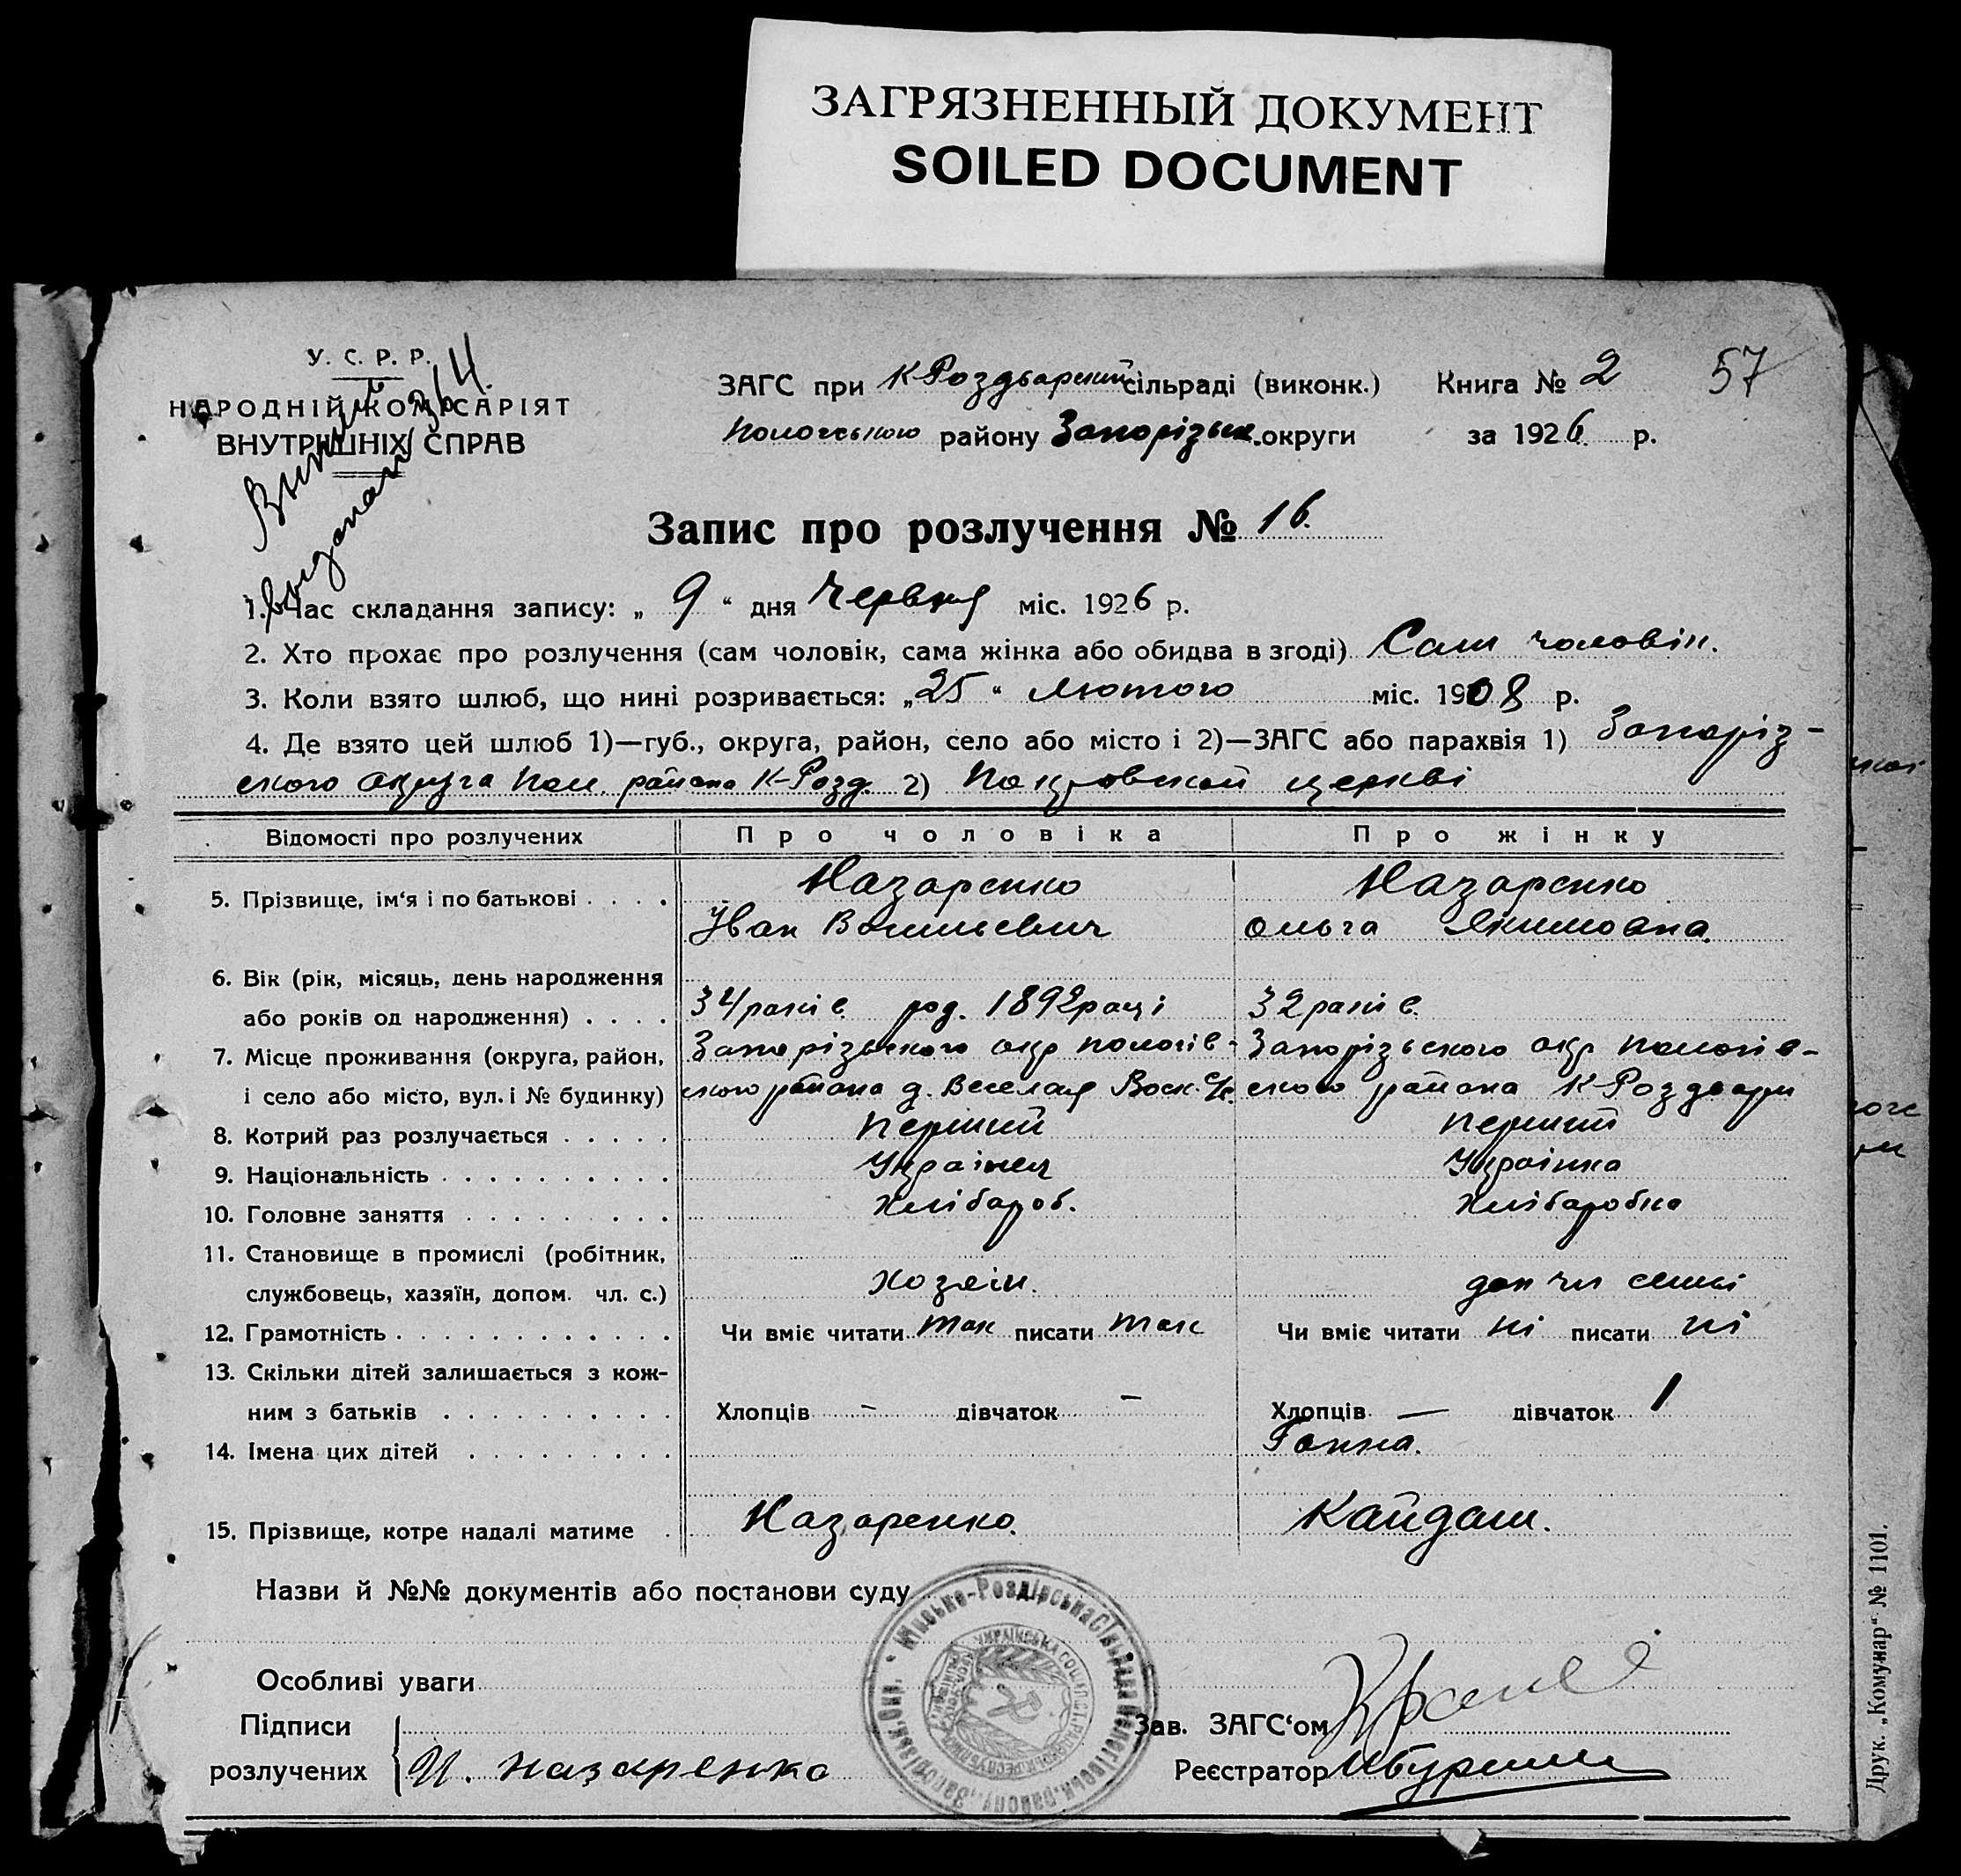 ЗАГРЯЗНЕННЫЙ ДОКУМЕНТ
SOILED DOCUMENT
У. С. Р. Р.
НАРОДНІЙ КОМІСАРІЯТ
ВНУТРІШНІХ СПРАВ
ЗАГС при К Роздьорський сільраді (виконк.) Книга № 2 57
району Запорізьк. округи за 1926 р.
Запис про розлучення № 16.
1. Час складання запису: „ 9 “ дня Червня міс. 1926 р.
2. Хто прохає про розлучення (сам чоловік, сама жінка або обидва в згоді) Сам чоловік.
3. Коли взято шлюб, що нині розривається: „25“ Лютого міс. 1908 р.
4. Де взято цей шлюб 1)—губ., округа, район, село або місто і 2)—ЗАГС або парахвія 1) Запоріз-
ского округа Пол. района К-Розд. 2) Покровской церкві
Відомості про розлучених Про чоловіка Про жінку
5. Прізвище, ім‘я і по батькові Назаренко Назаренко
Іван Васильевич Ольга Якимовна.
6. Вік (рік, місяць, день народження
або років од народження) 34 років род. 1892 році 32 років
7. Місце проживання (округа, район, Запорізьского окр пологів- Запорізьского окр пологів-
і село або місто, вул. і № будинку) ского района д. Веселая Воск. с/с. ского района К-Роздори
8. Котрий раз розлучається Перший Перший
9. Національність Українец Українка
10. Головне заняття Хлібороб. Хліборобка
11. Становище в промислі (робітник,
службовець, хазяїн, допом. чл. с.) Хозяін. доп чл семьі
12. Грамотність Чи вміє читати так писати так Чи вміє читати ні писати ні
13. Скільки дітей залишається з кож-
ним з батьків Хлопців – дівчаток – Хлопців — дівчаток 1
14. Імена цих дітей Ганна.
15. Прізвище, котре надалі матиме Назаренко. Кайдаш.
Назви й №№ документів або постанови суду
Особливі уваги
Підписи Зав. ЗАГС‘ом
розлучених И. Назаренко Реєстратор
Друк. „Комунар“ № 1101.